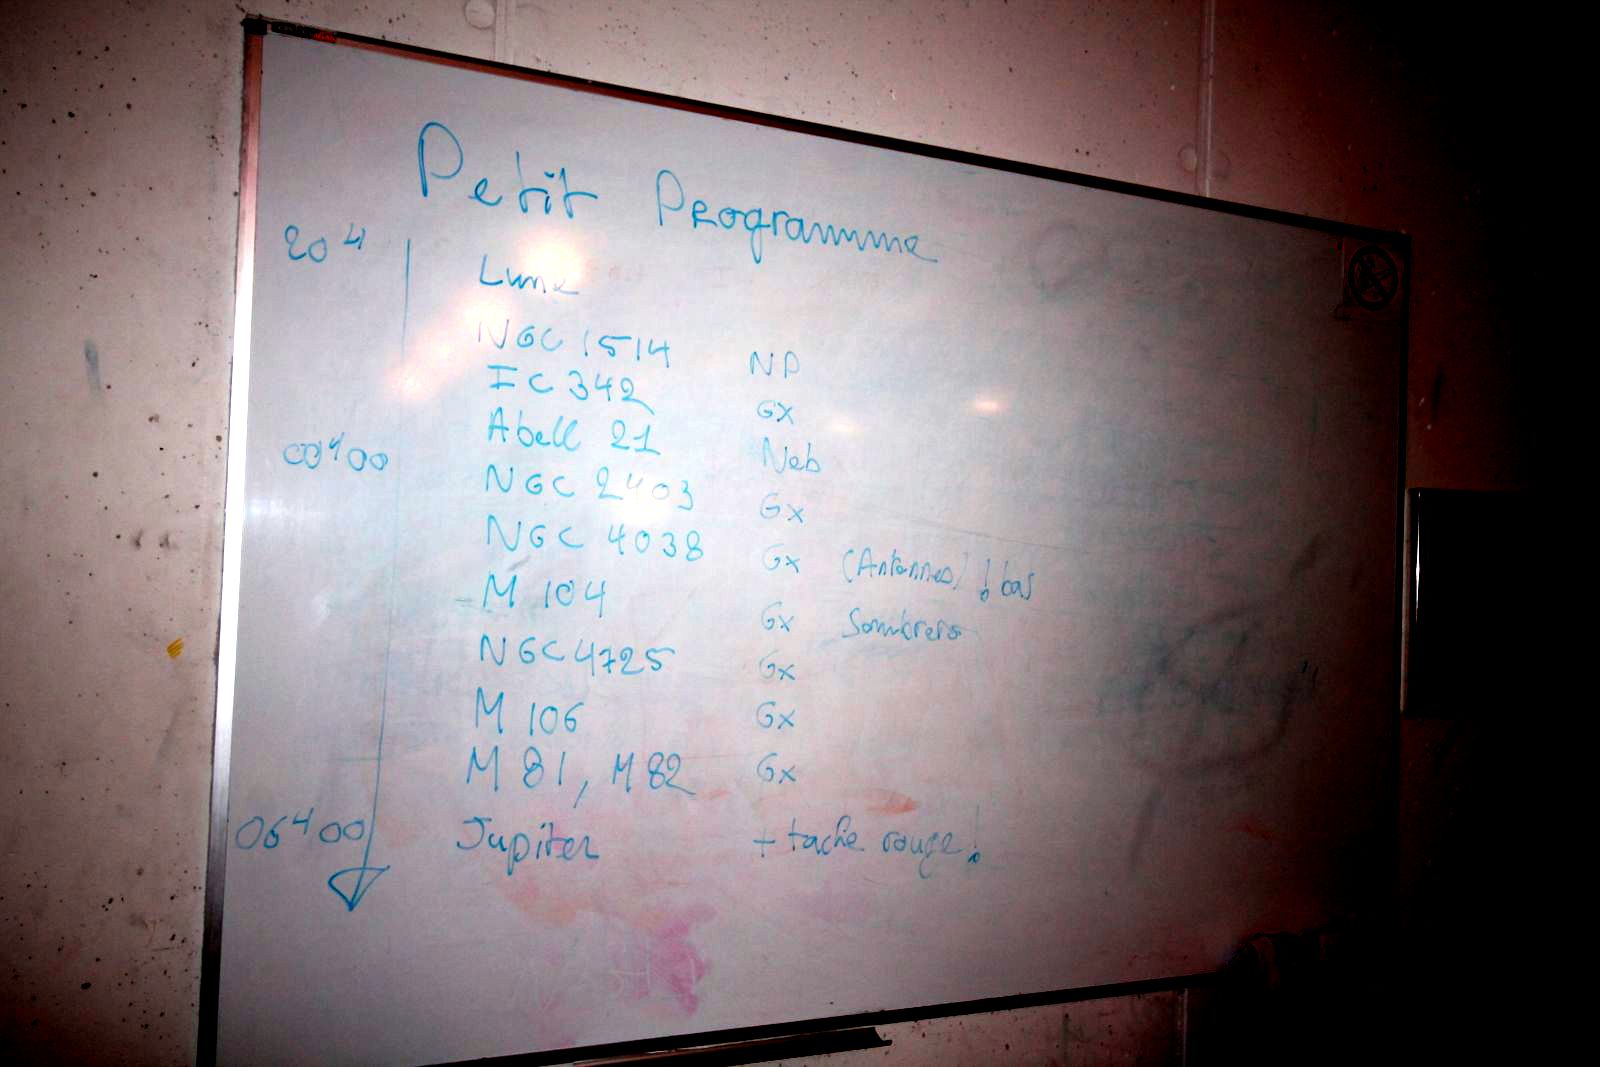 Petit Programme
20H
Lune
NGC 1514 NP
IC 342 Gx
Abell 21 Neb
00H00
NGC 2403 Gx
NGC 4038 Gx (Antennes) ! bas
M 104 Gx Sombrero
NGC 4725 Gx
M 106 Gx
M 81, M 82 Gx
06H00 Jupiter + tache rouge!